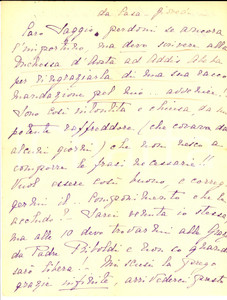 da Casa - giovedì -
Caro Saggio, perdoni se ancora
l'importuno, ma devo scrivere alla
Duchessa d'Aosta ad Addis Abeba
per ringraziarla di una sua racco
mandazione pel mio
Sono così intontita e chiusa da un
potente raffreddore (che covavo da
alcuni giorni) che non riesco a
comporre le frasi necessarie!!
Vuol essere così buono, e correg
germi il.. componimento che le
accludo? Sarei venuta io stessa,
ma alle 10 devo trovarmi alla
da Padre e non so quando
sarò libera! Mi scusi La prego
grazie infinite, arrivederci